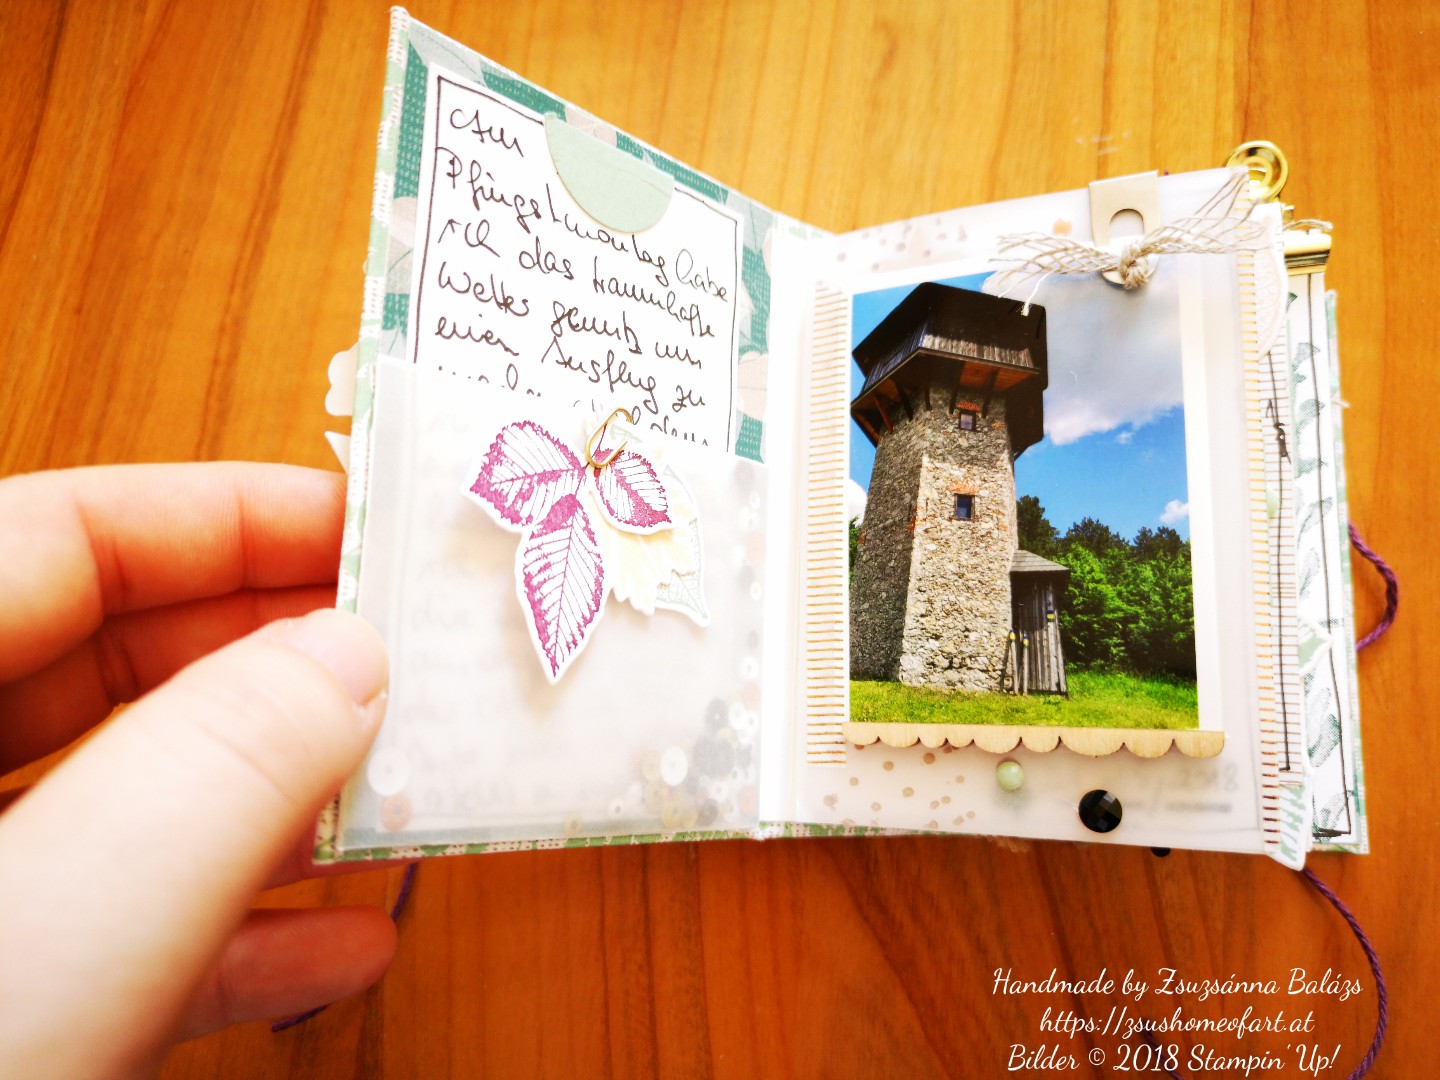 Am
Pfingstmontag habe
ich das traumhafte
Wetter genutz um
einen Ausflug zu
2018
Handmade by Zsuzsánna Balázs
https://zsushomeofart.at
Bilder © 2018 Stampin' Up!